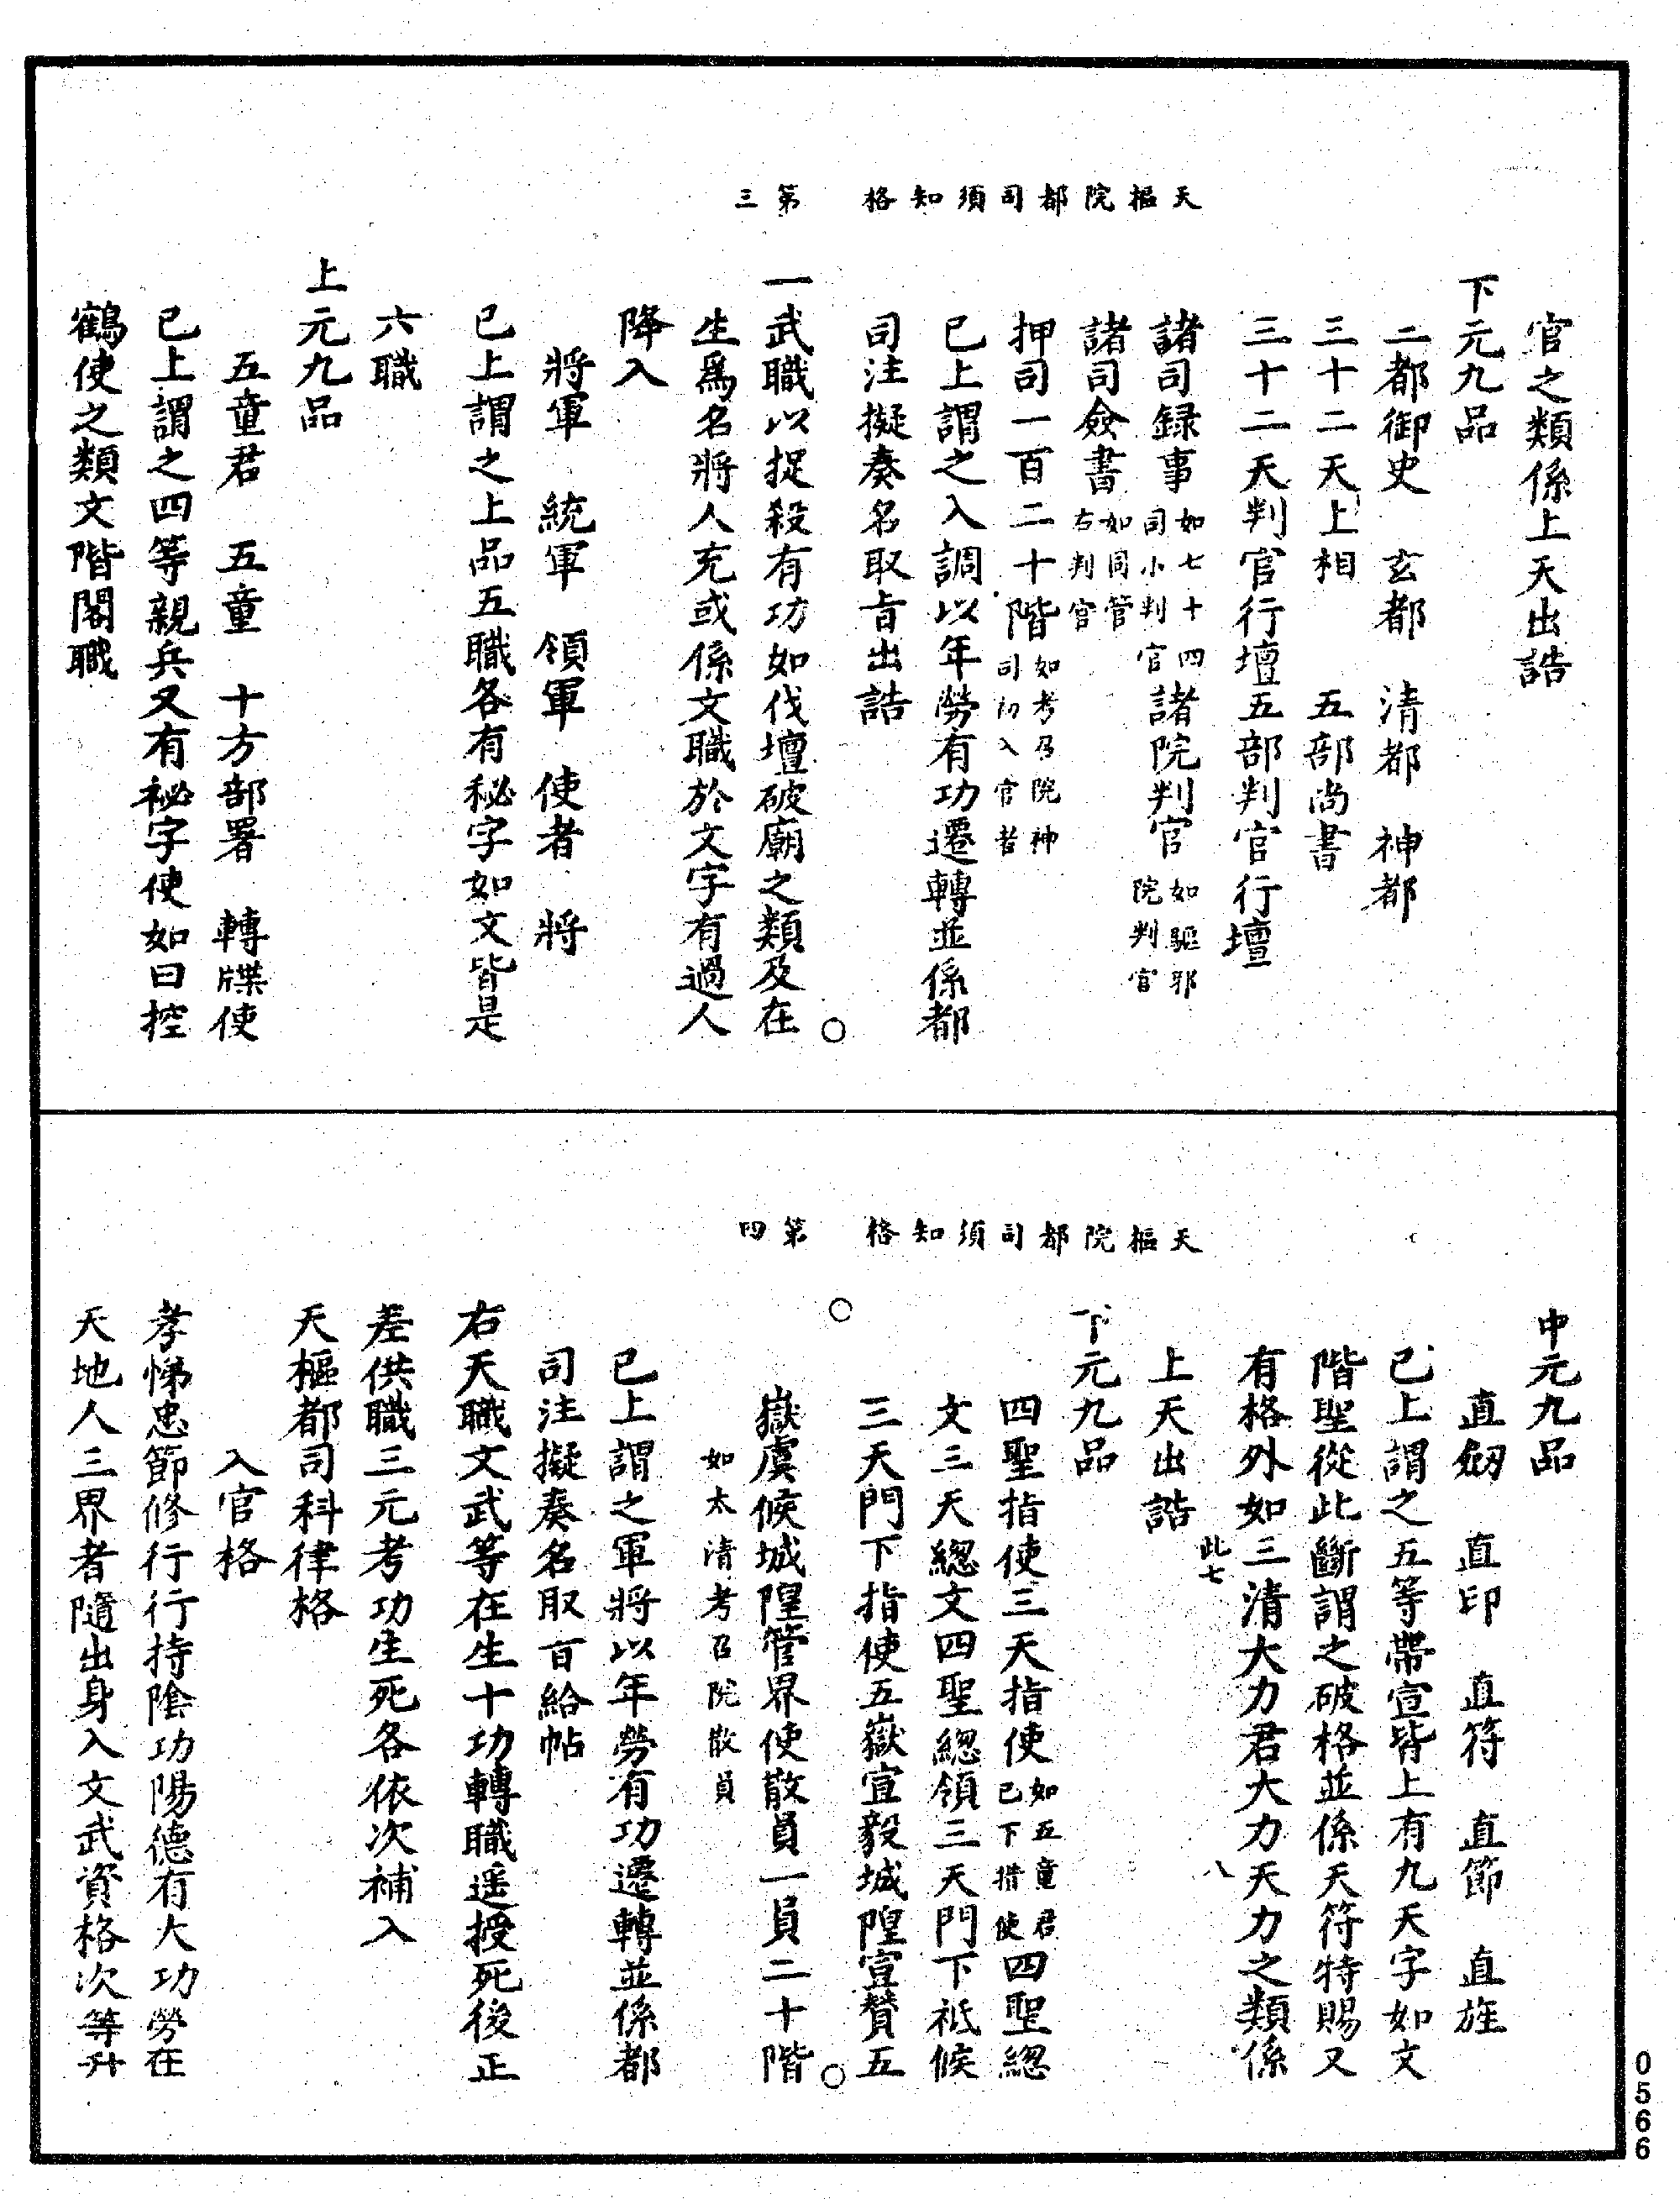 天樞院都司須知格　第三
官之類係上天出誥
下元九品
二都御史　玄都　清都　神都
三十二天上相　五部尚書
三十二天判官行壇五部判官行壇
諸司録事如七十四司小判官諸院判官如驅邪院判官
諸司僉書如同管右判官
押司一百二十階如考召院神司初入官者
已上謂之入調以年勞有功遷轉並係都
司注擬奏名取旨出誥
一武職以捉殺有功如伐壇破廟之類及在
生爲名將人充或係文職於文字有過人
降入
將軍　統軍　領軍　使者　將
已上謂之上品五職各有秘字如文皆是
六職
上元九品
五童君　五童　十方部署　轉牒使
已上謂之四等親兵又有祕字使如曰控
鶴使之類文階閣職
天樞院都司須知格　第四
中元九品
直劒　直印　直符　直節　直旌
已上謂之五等帶宣皆上有九天字如文
階聖從此斷謂之破格並係天符特賜又
有格外如三清大力君大力天力之類係
此七　八
上天出誥
下元九品
四聖指使三天指使如五童君已下指使四聖總
文三天總文四聖總領三天門下祗候
三天門下指使五嶽宣毅城隍宣贊五
嶽虞候城隍管界使散員一員二十階
如太清考召院散員
已上謂之軍將以年勞有功遷轉並係都
司注擬奏名取旨給帖
右天職文武等在生十功轉職遥授死後正
差供職三元考功生死各依次補入
天樞都司科律格
入官格
孝悌忠節修行行持陰功陽德有大功勞在
天地人三界者隨出身入文武資格次等升
0566